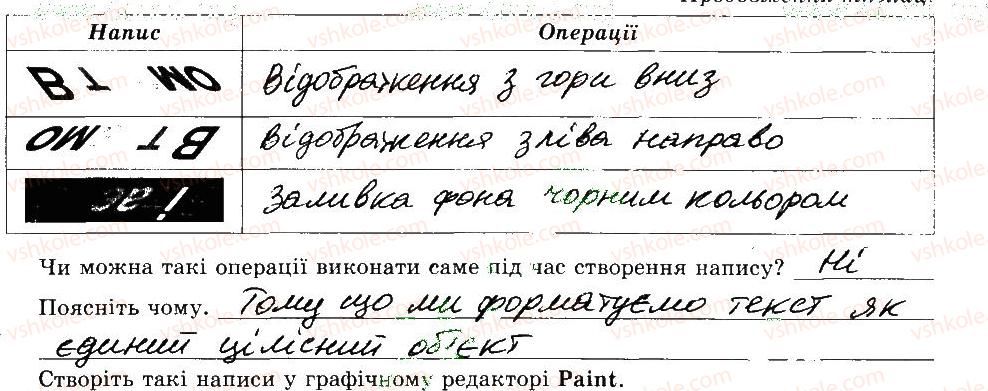 Напис Операції
Відображення з гори вниз
Відображення зліва направо
Заливка фона чорним кольором
Чи можна такі операції виконати саме під час створення напису? Ні
Поясніть чому. Тому що ми форматуємо текст як
єдиний цілісний об'єкт
Створіть такі написи у графічному редакторі Paint.